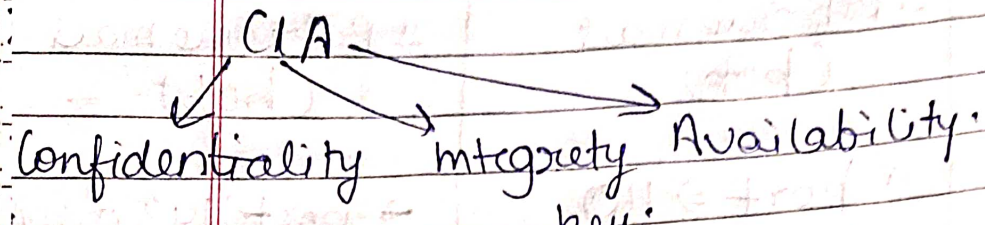 CIA
Confidentiality Integrety Availability.